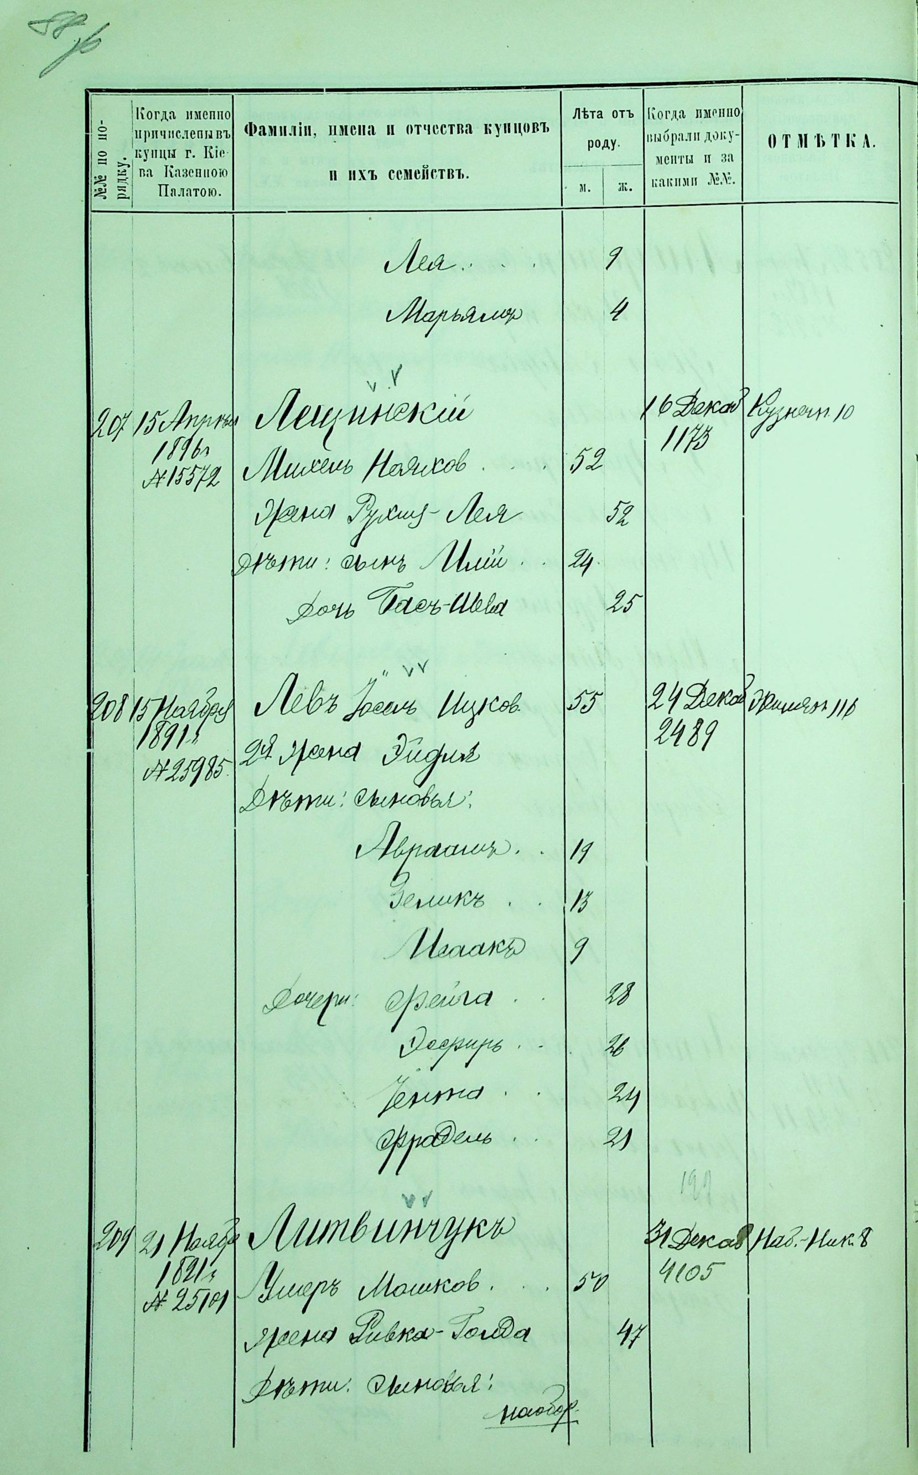 №№ по по-
рядку.
Когда именно
причислены въ
купцы г. Кіе-
ва Казенною
Палатою.
Фамиліи, имена и отчества купцовъ
и ихъ семействъ.
Лѣта отъ
роду.
м. ж.
Когда именно
выбрали доку-
менты и за
какими №№.
ОТМѢТКА.
Лея 9
Марьямъ 4
207 15 Апрѣля Лещинскій 16 Декаб
1896 г 1173
№ 15572 Михель 52
Жена Рухля-Лея 52
Дѣти: сынъ Илій 24
Дочь Бася-Шева 25
208 15 Ноября Левъ Іосель Ицков 55 24 Декаб
1891 г 2489
№ 25985 2я Жена Эйдля
Дѣти: сыновья:
Авраамъ 19
Зеликъ 13
Исаакъ 9
Дочери: Фейга 28
Эсфирь 26
Јента 24
Фрадель 21
209 21 Ноября Литвинчукъ 31 Декаб Наб.-Ник. 8
1891 г 4105
№ 25101 Умеръ Мошков 50
Жена Ривка-Голда 47
Дѣти: Сыновья:
наобор.